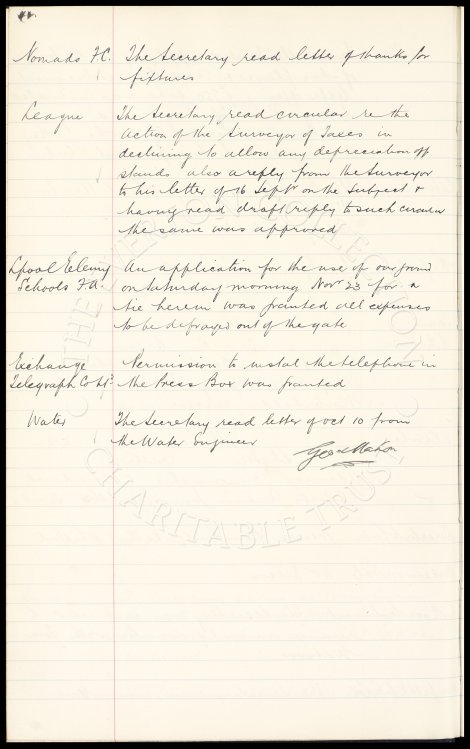 44.
Nomads F.C. The Secretary read letter of thanks for
fixtures
League The Secretary read circular re the
action of the Surveyor of Taxes in
declining to allow any depreciation off
stands also a reply from the Surveyor
to his letter of 16 Septr on the subject &
having read draft reply to such circular
the same was approved
Lpool Elemy An application for the use of our ground
Schools F.A. on Saturday morning Novr 23 for a
tie herein was granted all expenses
to be defrayed out of the gate
Exchange Permission to instal the telephone in
Telegraph Co Ltd the Press Box was granted
Water The Secretary read letter of Oct 10 from
the Water Engineer
Geo Mahon
THE EVERTON COLLECTION
CHARITABLE TRUST